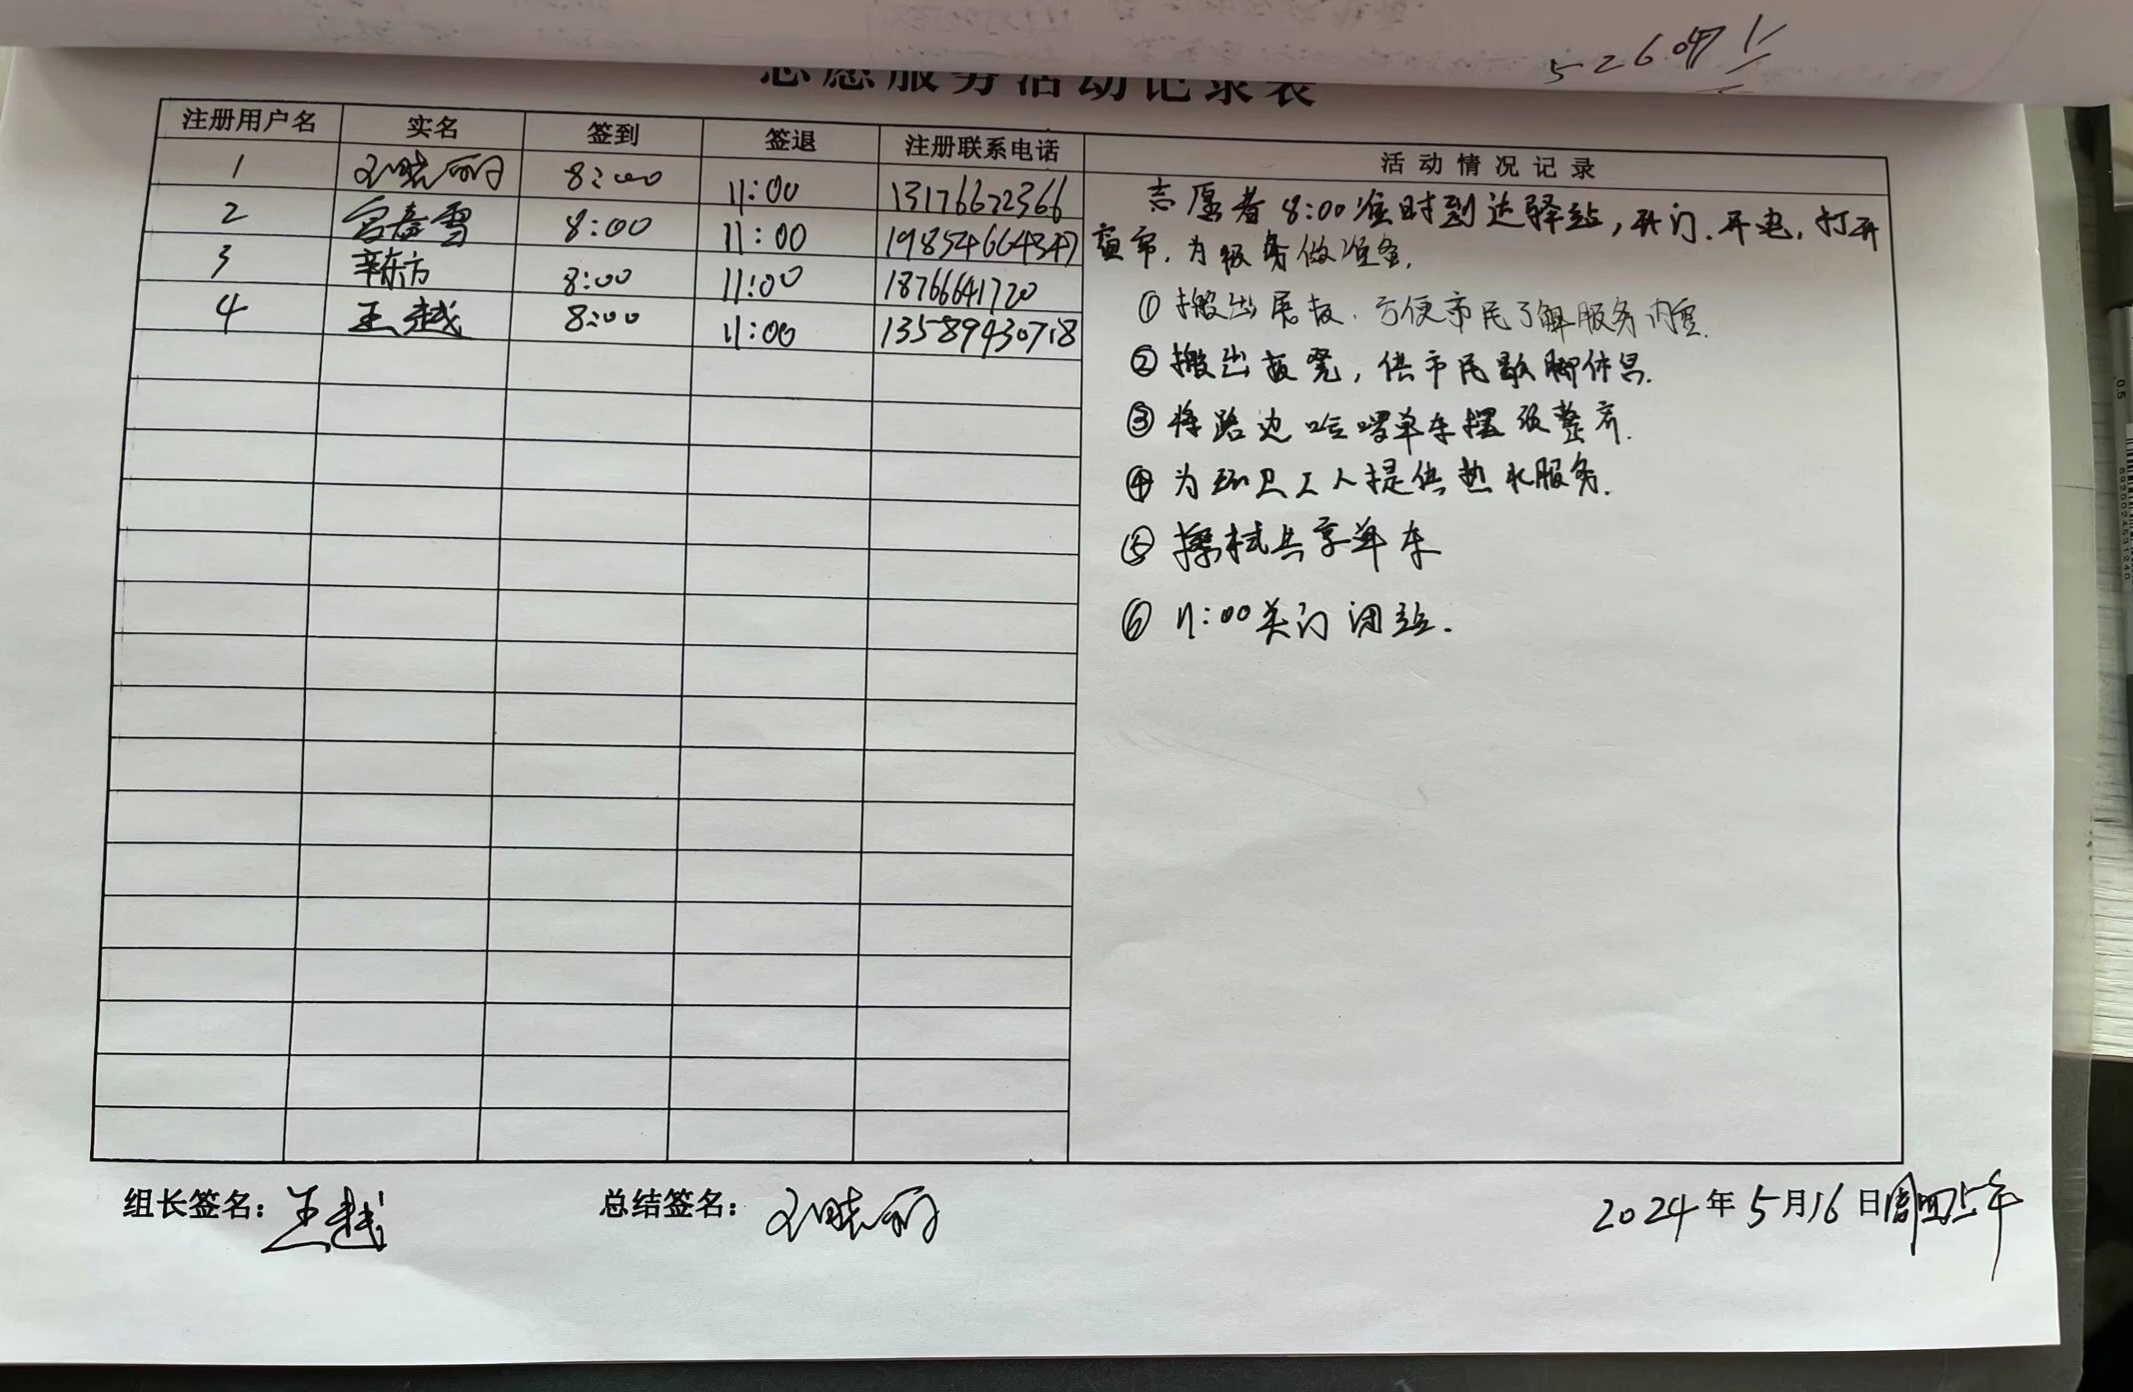 志愿服务活动记录表
注册用户名 实名 签到 签退 注册联系电话 活动情况记录
1 刘晓丽 8:00 11:00 13176672366
2 宫春雪 8:00 11:00 19854664347
3 辛东方 8:00 11:00 18766641720
4 王越 8:00 11:00 13589430718
志愿者8:00准时到达驿站,开门.开电,打开
窗帘,为服务做准备.
①搬出展板.方便市民了解服务内容.
②搬出板凳,供市民歇脚休息.
③将路边哈啰单车摆放整齐.
④为环卫工人提供热水服务.
⑤擦拭共享单车
⑥11:00关门闭站.
组长签名:王越 总结签名:刘晓丽 2024年5月16日周四上午